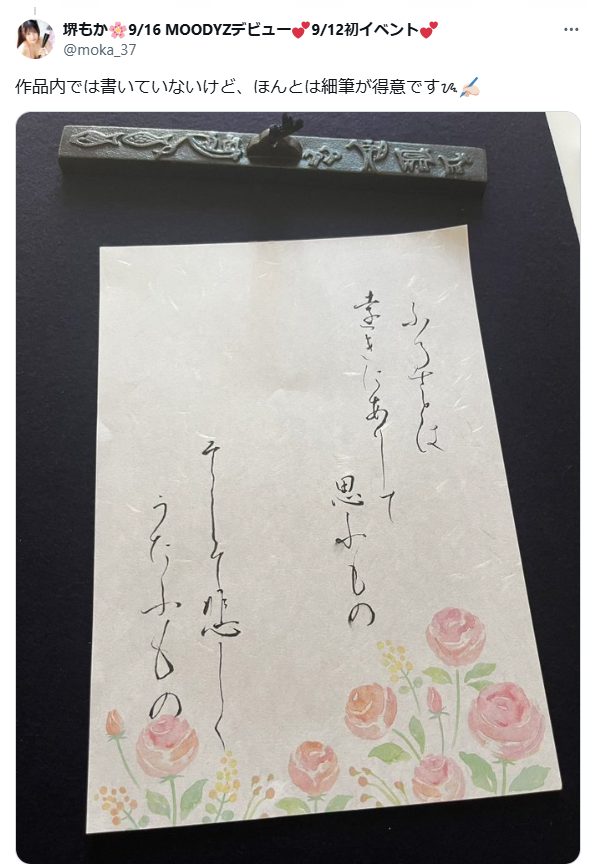 堺もか🌸9/16 MOODYZデビュー💕9/12初イベント💕
@moka_37
作品内では書いていないけど、ほんとは細筆が得意ですᝰ✍🏻
ふるさとは
遠きにありて
思ふもの
そして悲しく
うたふもの